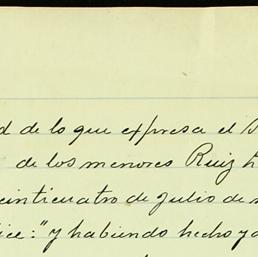 d de lo que expresa el
de los menores Ruiz
einticuatro de julio de
ice: "y habiendo hecho ya